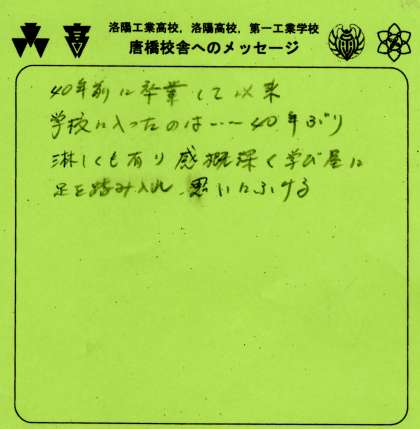 洛陽工業高校，洛陽高校，第一工業学校
唐橋校舎へのメッセージ
40年前に卒業して以来
学校に入ったのは…～40年ぶり
淋しくも有り感慨深く学び屋に
足を踏み入れ、思いにふける